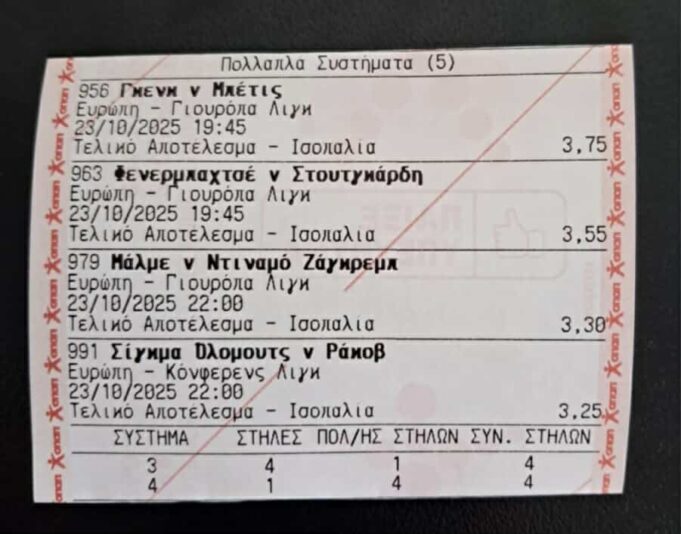 Πολλαπλα Συστήματα (5)
956 Γκενκ v Μπέτις
Ευρώπη - Γιουρόπα Λιγκ
23/10/2025 19:45
Τελικό Αποτέλεσμα - Ισοπαλία 3,75
963 Φενερμπαχτσέ v Στουτγκάρδη
Ευρώπη - Γιουρόπα Λιγκ
23/10/2025 19:45
Τελικό Αποτέλεσμα - Ισοπαλία 3,55
979 Μάλμε v Ντιναμό Ζάγκρεμπ
Ευρώπη - Γιουρόπα Λιγκ
23/10/2025 22:00
Τελικό Αποτέλεσμα - Ισοπαλία 3,30
991 Σίγκμα Όλομουτς v Ράκοβ
Ευρώπη - Κόνφερενς Λιγκ
23/10/2025 22:00
Τελικό Αποτέλεσμα - Ισοπαλία 3,25
ΣΥΣΤΗΜΑ ΣΤΗΛΕΣ ΠΟΛ/ΗΣ ΣΤΗΛΩΝ ΣΥΝ. ΣΤΗΛΩΝ
3 4 1 4
4 1 4 4